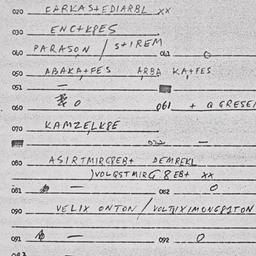 020 CARKASTEDIARBL xx
030 ENCTKPES
040 PARASON / STIREM
041 0
050 ABAKATFES ARBA KATFES
051 —
060 0 061 + Q GRESEI
070 KAMZELKPE
072 —
080 ASIRTMIRGPEBT DEMPEKL
)VOLGSTMIRG 8EBT xx
081 — 082 0
090 VELIX ONTON / VOLTJIXIMONGPITON
091 — 092 0